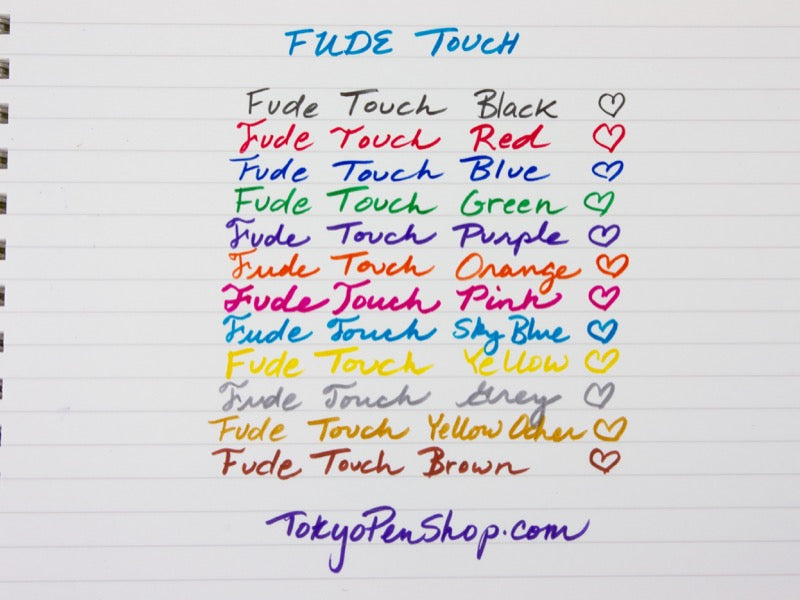 FUDE TOUCH
Fude Touch Black ♡
Fude Touch Red ♡
Fude Touch Blue ♡
Fude Touch Green ♡
Fude Touch Purple ♡
Fude Touch Orange ♡
Fude Touch Pink ♡
Fude Touch Sky Blue ♡
Fude Touch Yellow ♡
Fude Touch Grey ♡
Fude Touch Yellow Ocher ♡
Fude Touch Brown ♡
TokyoPenShop.com